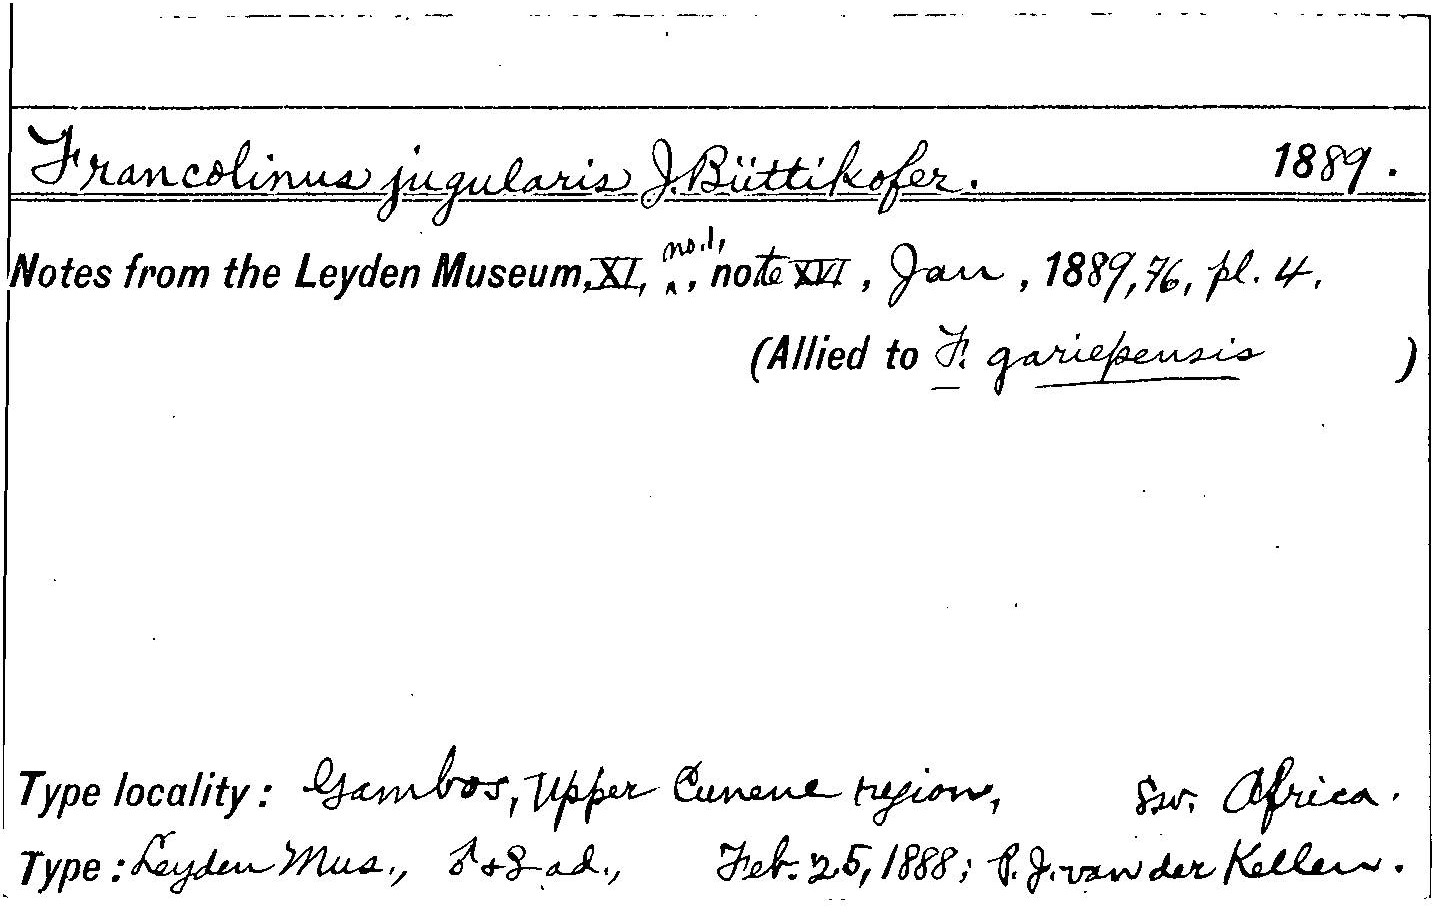 Francolinus jugularis J. Büttikofer. 1889.
Notes from the Leyden Museum, XI, no.1, , note XVI , Jan , 1889, 76, pl. 4.
(Allied to F. gariepensis )
Type locality : Gambos, Upper Cunene region, Sw. Africa.
Type : Leyden Mus., ♂ + ♀ ad., Feb. 25, 1888; P. J. van der Kellen.